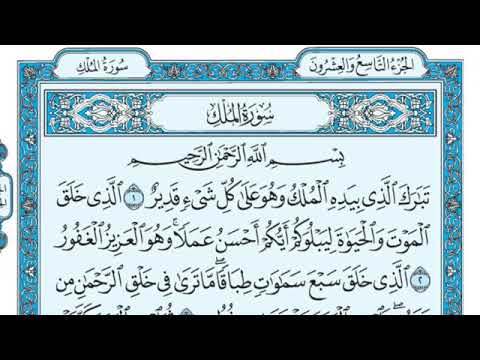 الجُزْءُ التَّاسِعُ وَالعِشْرُونَ
سُورَةُ المُلْكِ
سُورَةُ المُلْكِ
بِسْمِ اللَّهِ الرَّحْمَٰنِ الرَّحِيمِ
تَبَٰرَكَ ٱلَّذِى بِيَدِهِ ٱلْمُلْكُ وَهُوَ عَلَىٰ كُلِّ شَىْءٍ قَدِيرٌ ١ ٱلَّذِى خَلَقَ
ٱلْمَوْتَ وَٱلْحَيَوٰةَ لِيَبْلُوَكُمْ أَيُّكُمْ أَحْسَنُ عَمَلًا ۚ وَهُوَ ٱلْعَزِيزُ ٱلْغَفُورُ
٢ ٱلَّذِى خَلَقَ سَبْعَ سَمَٰوَٰتٍ طِبَاقًا ۖ مَّا تَرَىٰ فِى خَلْقِ ٱلرَّحْمَٰنِ مِن